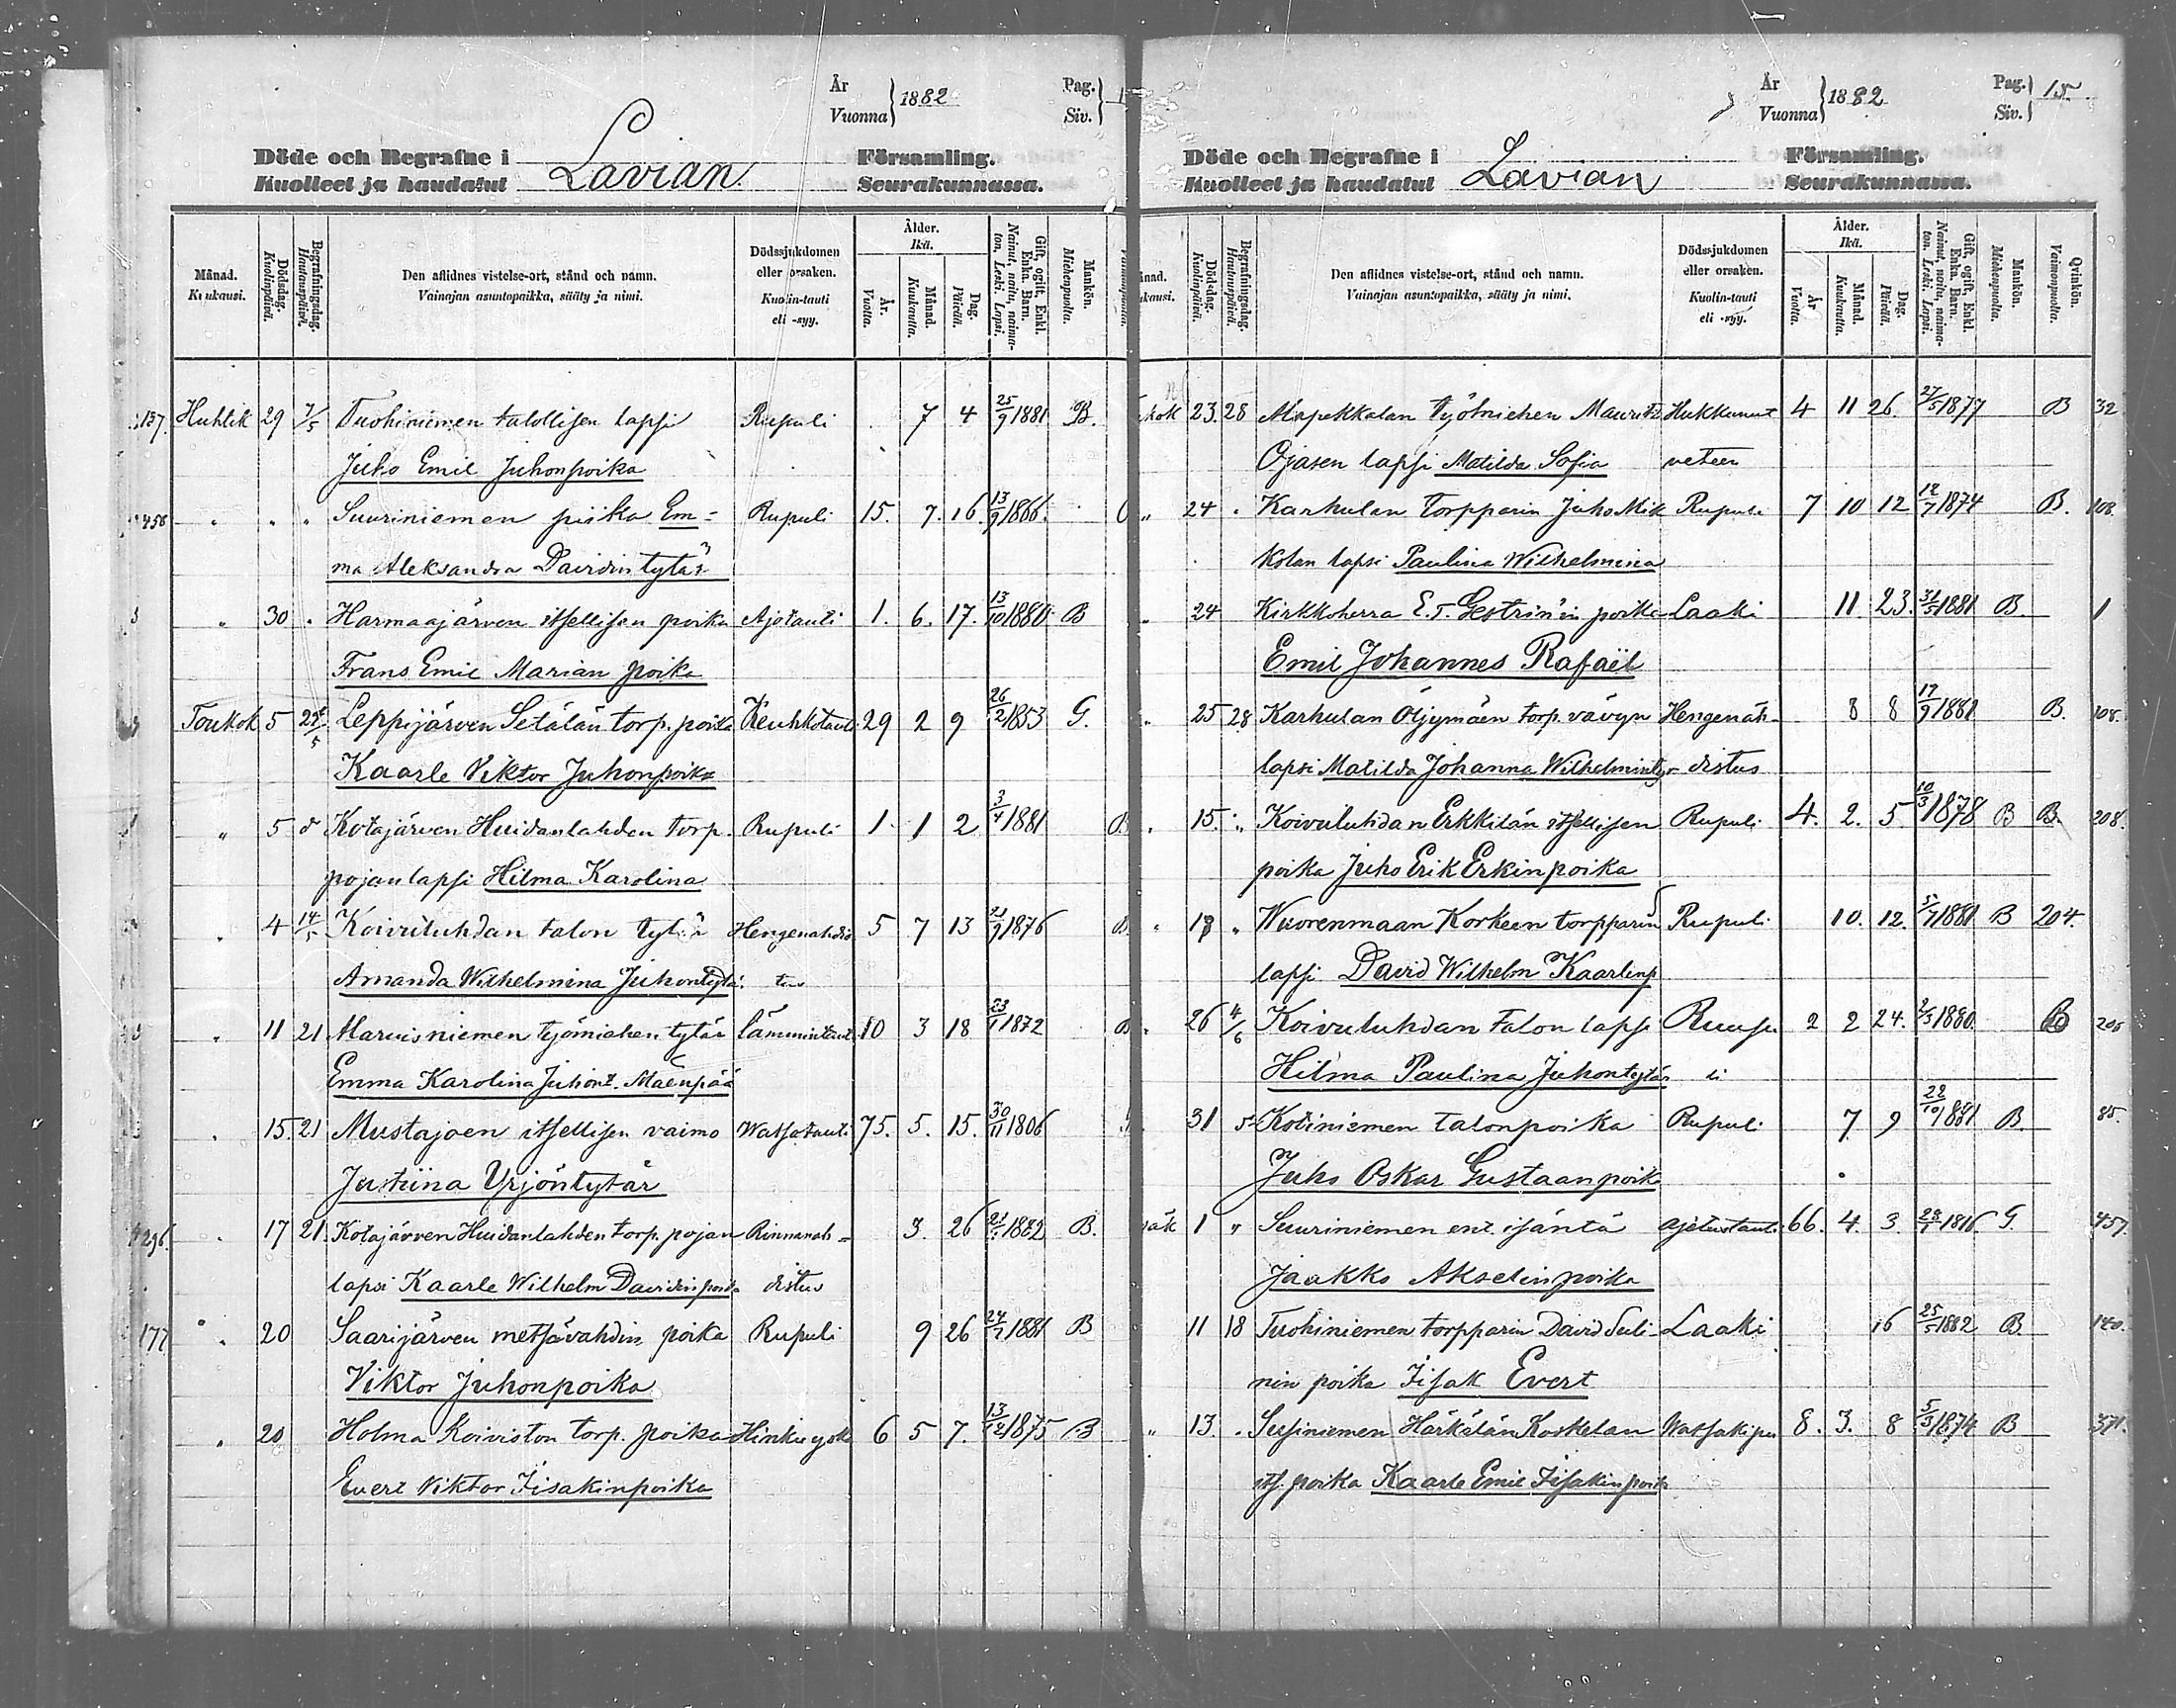 År
Vuonna} 1882
Pag.
Siv.
Döde och Begrafne i
Kuolleet ja haudatut
Lavian
Församling.
Seurakunnassa.
Månad.
Kuukausi.
Dödsdag.
Kuolinpäivä.
Begrafningsdag.
Hautauspäivä.
Den aflidnes vistelse-ort, stånd och namn.
Vainajan asuntopaikka, sääty ja nimi.
Dödssjukdomen
eller orsaken.
Kuolin-tauti
eli -syy.
Ålder.
Ikä.
År.
Vuotta.
Månad.
Kuukautta.
Dag.
Päivää.
Gift, ogift, Enkl.
Enka. Barn.
Nainut, naitu, naima-
ton, Leski. Lapsi.
Mankön.
Miehenpuolta.
157. Huhtik 29 7/5 Tuohiniemen talollisen lapsi Rupuli 7 4 25/9 1881 B.
Juho Emil Juhonpoika
458 " " " Suuriniemen piika Em= Rupuli 15. 7. 16. 13/9 1866.
ma Aleksandra Davidintytär
" 30 " Harmaajärven itsellisen poika Ajotauti 1. 6. 17. 13/10 1880 B
Frans Emil Marian poika
Toukok 5 21/5 Leppijärven Setälän torp. poika Keuhkotauti 29 2 9 26/2 1853 G.
Kaarle Viktor Juhonpoika
" 5 " Kotajärven Huidanlahden torp. Rupuli 1 1 2 3/4 1881 B
pojan lapsi Hilma Karolina
" 4 14/5 Koiviluhdan talon tytär Hengenahdis 5 7 13 21/9 1876 B.
Amanda Wilhelmina Juhontytär tus
" 11 21 Maruisniemen työmiehen tytär lämmintauti 10 3 18 23/1 1872 B
Emma Karolina Juhont. Mäenpää
" 15. 21 Mustajoen itsellisen vaimo Watsatauti 75. 5. 15. 30/11 1806
Justiina Yrjöntytär
296. " 17 21. Kotajärven Huidanlahden torp. pojan Rinnanah= 3. 26 21/1 1882 B.
lapsi Kaarle Wilhelm Davidinpoika distus
177 " 20 Saarijärven metsävahdin poika Rupuli 9 26 24/7 1881 B
Viktor Juhonpoika
" 20 Holma Koiviston torp. poika Hinkuyskä 6 5 7. 13/12 1875 B
Evert Viktor Iisakinpoika
År
Vuonna} 1882
Pag.
Siv.} 15.
Döde och Begrafne i
Kuolleet ja haudatut
Lavian
Församling.
Seurakunnassa.
Döds-dag.
Kuolinpäivä.
Begrafningsdag.
Hautauspäivä.
Den aflidnes vistelse-ort, stånd och namn.
Vainajan asuntopaikka, sääty ja nimi.
Dödssjukdomen
eller orsaken.
Kuolin-tauti
eli -syy.
Ålder.
Ikä.
År
Vuotta.
Månad.
Kuukautta.
Dag.
Päivää.
Gift, ogift, Enkl.
Enka. Barn.
Nainut, naitu, naima-
ton, Leski. Lapsi.
Mankön.
Miehenpuolta.
Qvinkön.
Vaimonpuolta.
kok 23. 28 Mapekkalan työmiehen Mauritz Hukkunut 4 11 26. 27/5 1877 B 32
Ojasen lapsi Matilda Sofia veteen
" 24 " Karhulan torpparin Juho Mik Rupuli 7 10 12 12/7 1874 B. 108.
kolan lapsi Paulina Wilhelmina
" 24 Kirkkoherra E. T. Gestrin'in poika Laaki 11. 23. 31/5 1881 B. 1
Emil Johannes Rafaël
" 25 28. Karhulan Öljymäen torp. vävyn Hengenah- 8 8 17/9 1881 B. 108.
lapsi Matilda Johanna Wilhelmint distus
" 15. " Koivuluhdan Erkkilän itsellisen Rupuli 4. 2. 5. 10/3 1878 B B. 208.
poika Juho Erik Erkinpoika
" 17 " Wuorenmaan Korkeen torpparin Rupuli 10. 12. 5/7 1881 B 204.
lapsi David Wilhelm Kaarlinp
" 26 4/6 Koivuluhdan talon lapsi Ruupu 2 2 24. 2/3 1880. B 205
Hilma Paulina Juhontytär li
31 5. Kotiniemen talonpoika Rupuli 7 9 22/10 1881 B. 85.
Juho Oskar Gustaanpoika
äk 1 " Suuriniemen ent. isäntä ajetustauti 66. 4. 3. 28/1 1816 G. 457.
Jaakko Akselinpoika
11 18 Tuohiniemen torpparin David Suli- Laaki 16 25/5 1882 B. 140.
nin poika Iisak Evert
" 13. " Susiniemen Härkälän Koskelan Watsakipu 8. 3. 8 5/3 1874 B 371.
its. poika Kaarle Emil Iisakinpoika